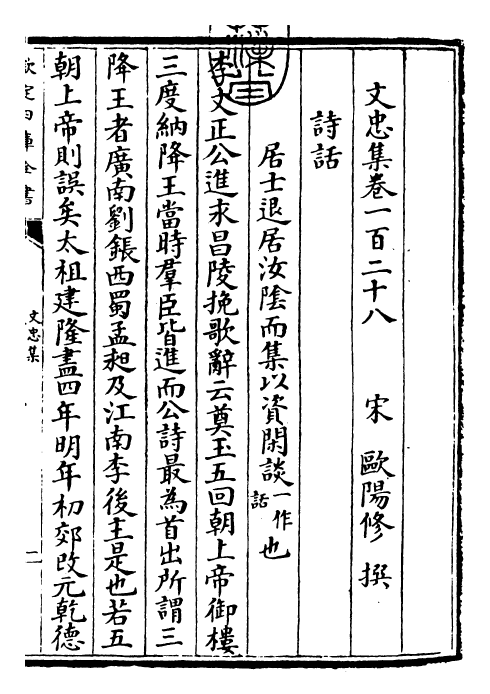 文忠集卷一百二十八
宋 歐陽修 撰
詩話
居士退居汝陰而集以資閑談一作話也
李文正公進永昌陵挽歌辭云奠玉五回朝上帝御樓
三度納降王當時羣臣皆進而公詩最為首出所謂三
降王者廣南劉鋹西蜀孟昶及江南李後主是也若五
朝上帝則誤矣太祖建隆盡四年明年初郊改元乾德
欽定四庫全書
文忠集